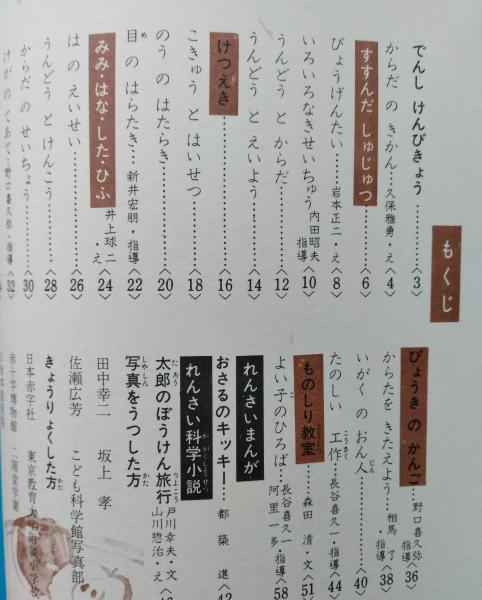 もくじ
でんし けんびきょう……〈3〉
からだ の きかん…久保雅勇・え〈4〉
すすんだ しゅじゅつ……〈6〉
びょうげんたい……岩本正二・え〈8〉
いろいろなきせいちゅう 内田昭夫 指導〈10〉
うんどう と からだ……〈12〉
うんどう と えいよう……〈14〉
けつえき……〈16〉
こきゅう と はいせつ……〈18〉
のう の はたらき……〈20〉
目 の はらたき…新井宏朋・指導〈22〉
みみ・はな・した・ひふ 井上球二・え〈24〉
は の えいせい……〈26〉
うんどう と けんこう……〈28〉
からだ の せいちょう……〈30〉
けが の てあて…野口喜久弥・指導〈32〉
びょうき の かんご…野口喜久弥 指導〈36〉
からたを きたえよう…相馬 了・指導〈38〉
いがく の おん人……〈40〉
たのしい 工作…長谷喜久一・指導〈44〉
ものしり教室……森田 清・文〈51〉
よい子のひろば…長谷喜久一 阿里一多・指導〈58〉
れんさいまんが
おさるのキッキー…都築 進
れんさい科学小説
太郎のぼうけん旅行 戸川幸夫・文 山川惣治・え
写真をうつした方
田中幸二 坂上 孝
佐瀬広芳 こども科学館写真部
きょうりょくした方
日本赤字社 東京教育大
赤十字博物館